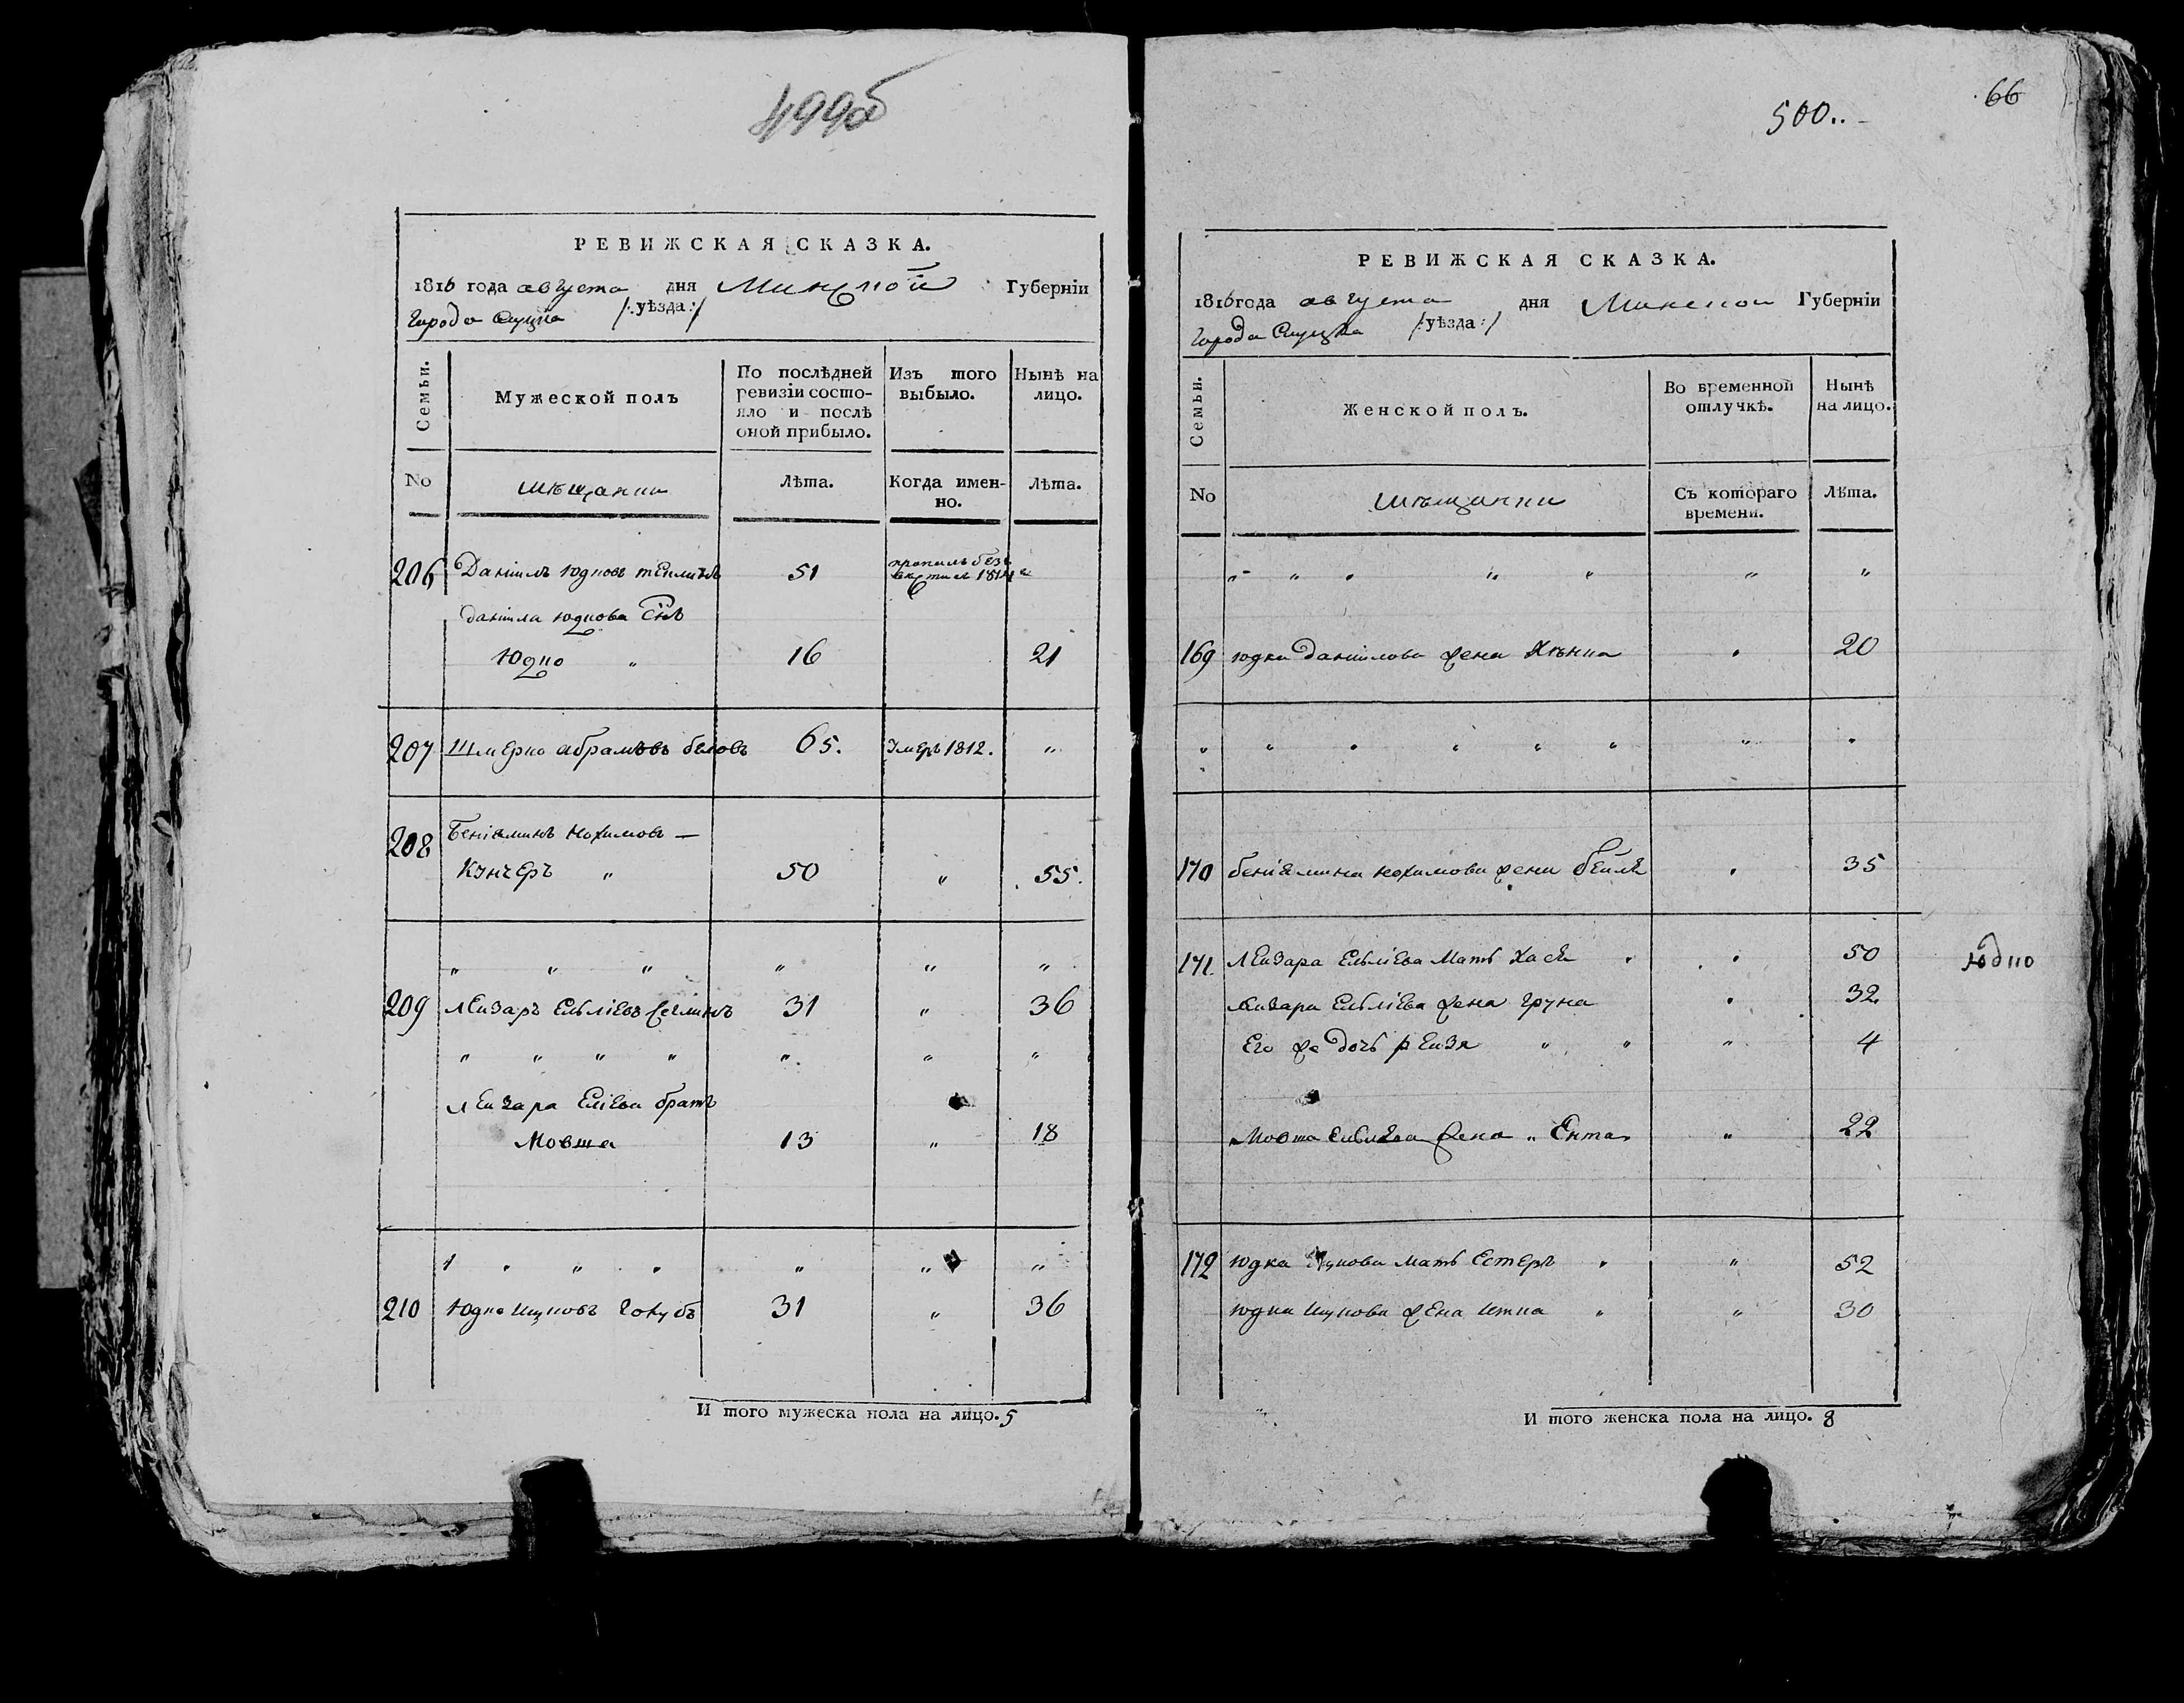 499об
РЕВИЖСКАЯ СКАЗКА.
1816 года августа дня Минской Губерніи
Города Слуцка /:уѣзда:/
Семьи.
Мужеской полъ
По послѣдней ревизіи состо-
яло и послѣ
оной прибыло.
Изъ того
выбыло.
Нынѣ на
лицо.
No
мѣщанки
Лѣта.
Когда имен-
но.
Лѣта.
206 Данiилъ Юдковъ 51 1814
Данiила Юдкова Сынъ
Юдко " 16 21
207 Шмерко Абрамовъ Беловъ 65. Умеръ 1812. "
208 Бенiаминъ Нохимовъ —
Кунчеръ " 50 " 55.
" " " " " "
209 Лейзаръ Ельлiевъ 31 " 36
" " " " " " "
Лейзара Елiева братъ
Мовша 13 " 18
" " " " " "
210 Юдко Ицковъ Голубъ 31 " 36
И того мужеска пола на лицо. 5
66
500..
РЕВИЖСКАЯ СКАЗКА.
1816 года августа дня Минской Губерніи
Города Слуцка /:уѣзда:/
Семьи.
Женской полъ.
Во временной
отлучкѣ.
Нынѣ
на лицо.
No
мѣщанки
Съ котораго
времени.
Лѣта.
" " " " " " "
169 Юдка Данiилова жена " 20
" " " " " " " "
170 Бенiамина Нохимова жена Бейля " 35
171. Лейзара Ельлiева Мать Хася " " 50 Юдко
Лейзара Ельлiева жена Груна " 32
Его же дочь Рейзя " " " 4
Мовша Ельлiева жена " Ента " 22
172 Юдка Ицкова Мать Естеръ " " 52
Юдка Ицкова жена Итка " " 30
И того женска пола на лицо. 8